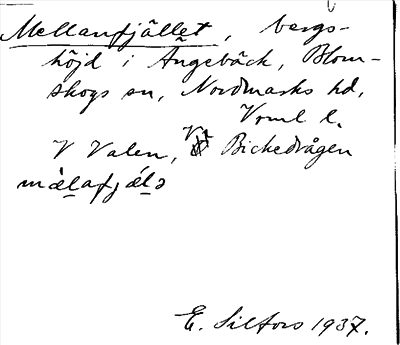 Mellanfjället, bergs-
höjd i Ängebäck, Blom-
skogs sn, Nordmarks hd,
Vrml l.
V Valen, Vä Bickedrågen
mä̀lafjälə
E. Silfors 1937.